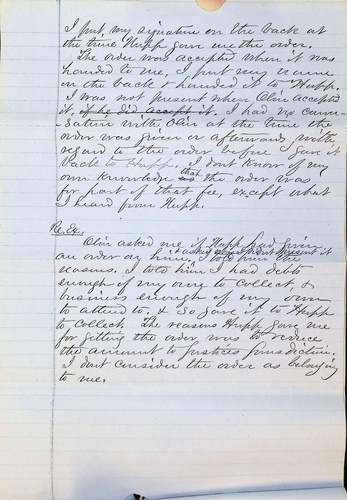 I put my signature on the back at
the time Hupp gave me the order.
The order was accepted when it was
handed to me, I put my name
on the back & handed it to Hupp.
I was not present when Olin accepted
it, if he did accept it. I had no conver-
sation with Olin at the time the
order was given or afterward, with
regard to the order before I gave it
back to Hupp. I dont know of my
own knowledge that the order was
for part of that fee, except what
I heard from Hupp.
Re. Ex.
Olin asked me if Hupp had given
an order on him, & asked present it
I told him the
reasons. I told him I had debts
enough of my own to collect, &
business enough of my own
to attend to, & so gave it to Hupp
to collect. The reasons Hupp gave me
for getting the order was to reduce
the amount to Justices jurisdiction.
I dont consider the order as belonging
to me.